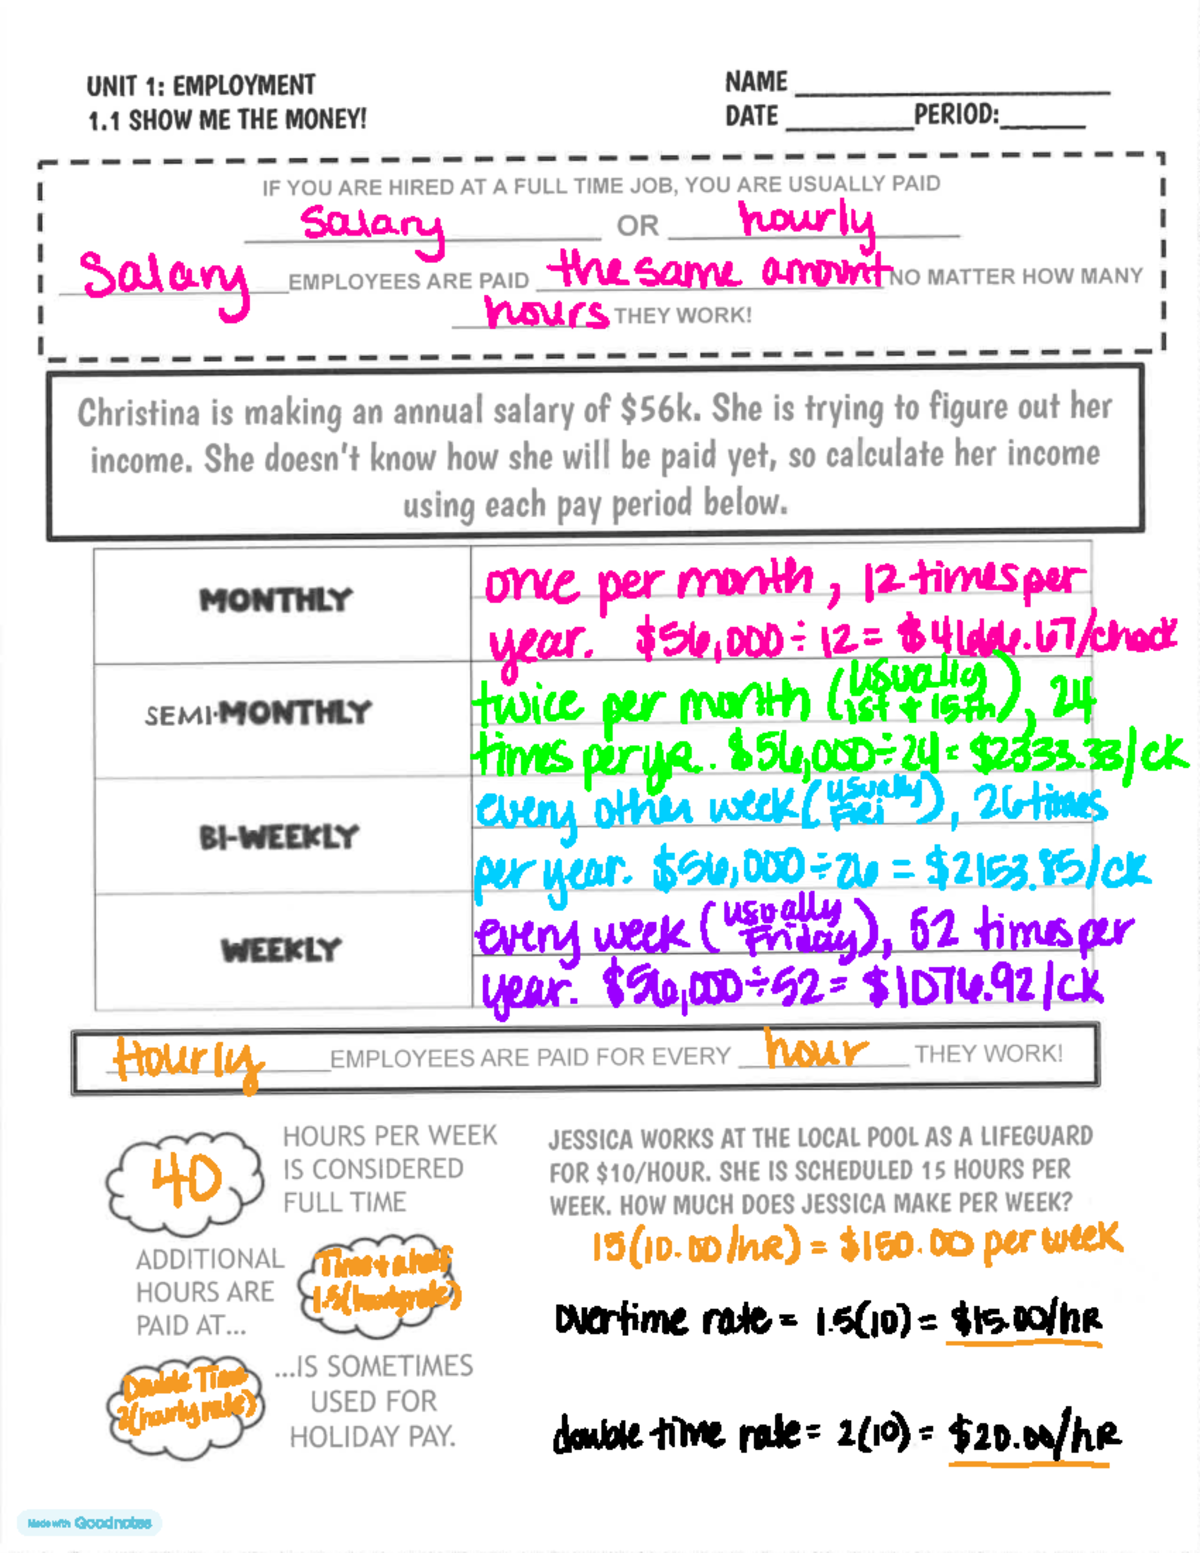 UNIT 1: EMPLOYMENT
NAME
1.1 SHOW ME THE MONEY!
DATE PERIOD:
IF YOU ARE HIRED AT A FULL TIME JOB, YOU ARE USUALLY PAID
salary OR hourly
Salary EMPLOYEES ARE PAID the same amount NO MATTER HOW MANY
hours THEY WORK!
Christina is making an annual salary of $56k. She is trying to figure out her
income. She doesn't know how she will be paid yet, so calculate her income
using each pay period below.
MONTHLY
once per month, 12 times per
year. $56,000 ÷ 12 = $4666.67/check
SEMI-MONTHLY
twice per month (usually 1st + 15th), 24
times per yr. $56,000÷24 = $2333.33/ck
BI-WEEKLY
every other week (usually Fri), 26 times
per year. $56,000÷26 = $2153.85/ck
WEEKLY
every week (usually Friday), 52 times per
year. $56,000÷52 = $1076.92/ck
Hourly EMPLOYEES ARE PAID FOR EVERY hour THEY WORK!
40
HOURS PER WEEK
IS CONSIDERED
FULL TIME
ADDITIONAL
HOURS ARE
PAID AT...
Time + a half
1.5(hourly rate)
Double Time
2(hourly rate)
...IS SOMETIMES
USED FOR
HOLIDAY PAY.
JESSICA WORKS AT THE LOCAL POOL AS A LIFEGUARD
FOR $10/HOUR. SHE IS SCHEDULED 15 HOURS PER
WEEK. HOW MUCH DOES JESSICA MAKE PER WEEK?
15(10.00/hr) = $150.00 per week
overtime rate = 1.5(10) = $15.00/hr
double time rate = 2(10) = $20.00/hr
Made with Goodnotes